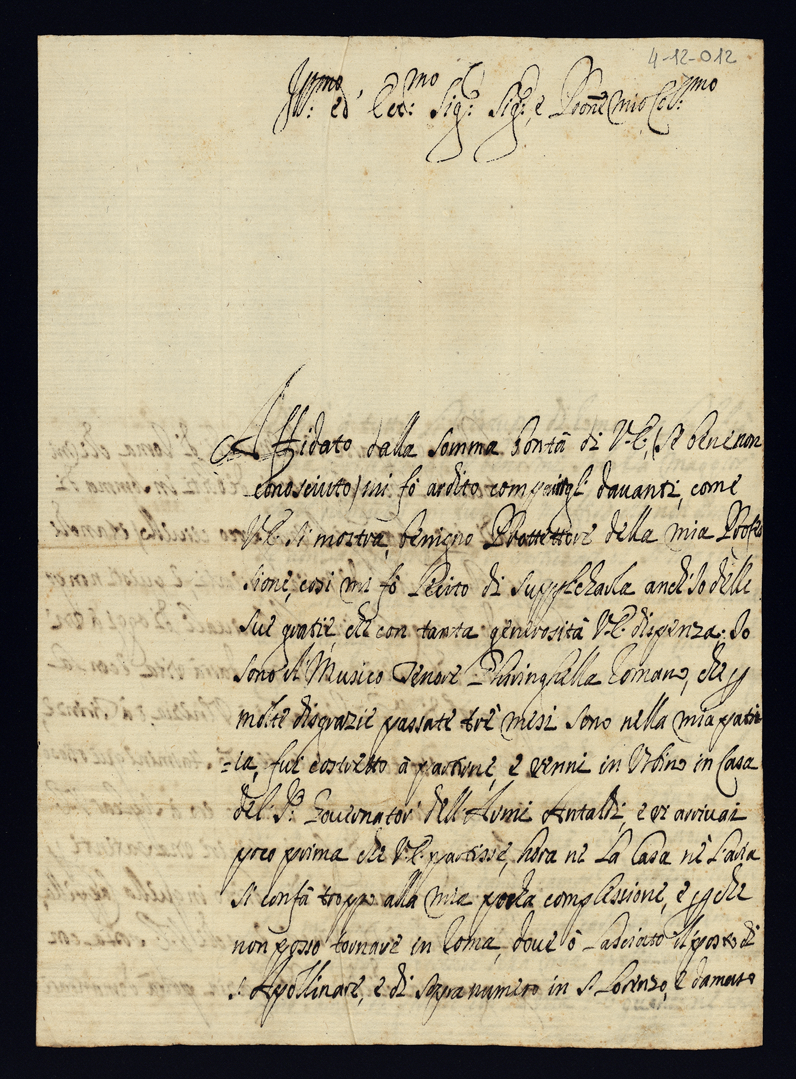 4-12-012
Ill.mo ed Ecc.mo Sig.r Sig.r e P̃rone mio Col.mo
Affidato dalla somma bontà di V.E. (se bene non
conosciuto) mi fò ardito davanti, come
V.E. si mostra, benigno Prottettore della mia Profes
sione, così mi fò lecito di supplicharla anch'io delle
sue gratie, che con tanta generosità V.E. dispenza. Io
sono il Musico Tenore Romano, che p
molte disgrazie passate trè mesi sono nella mia patr
=ia, fui costretto à partire, e venni in Urbino in Casa
del S.r Governator dell'Armi Antaldi, e vi arrivai
poco prima che V.E. partisse, hora nè la Casa nè l'aria
si confà troppo alla mia pocha complessione, e p che
non posso tornare in Roma, dove ò lasciato il posto di
S. Apollinare, e di sopranumero in S. Lorenzo, e damaso